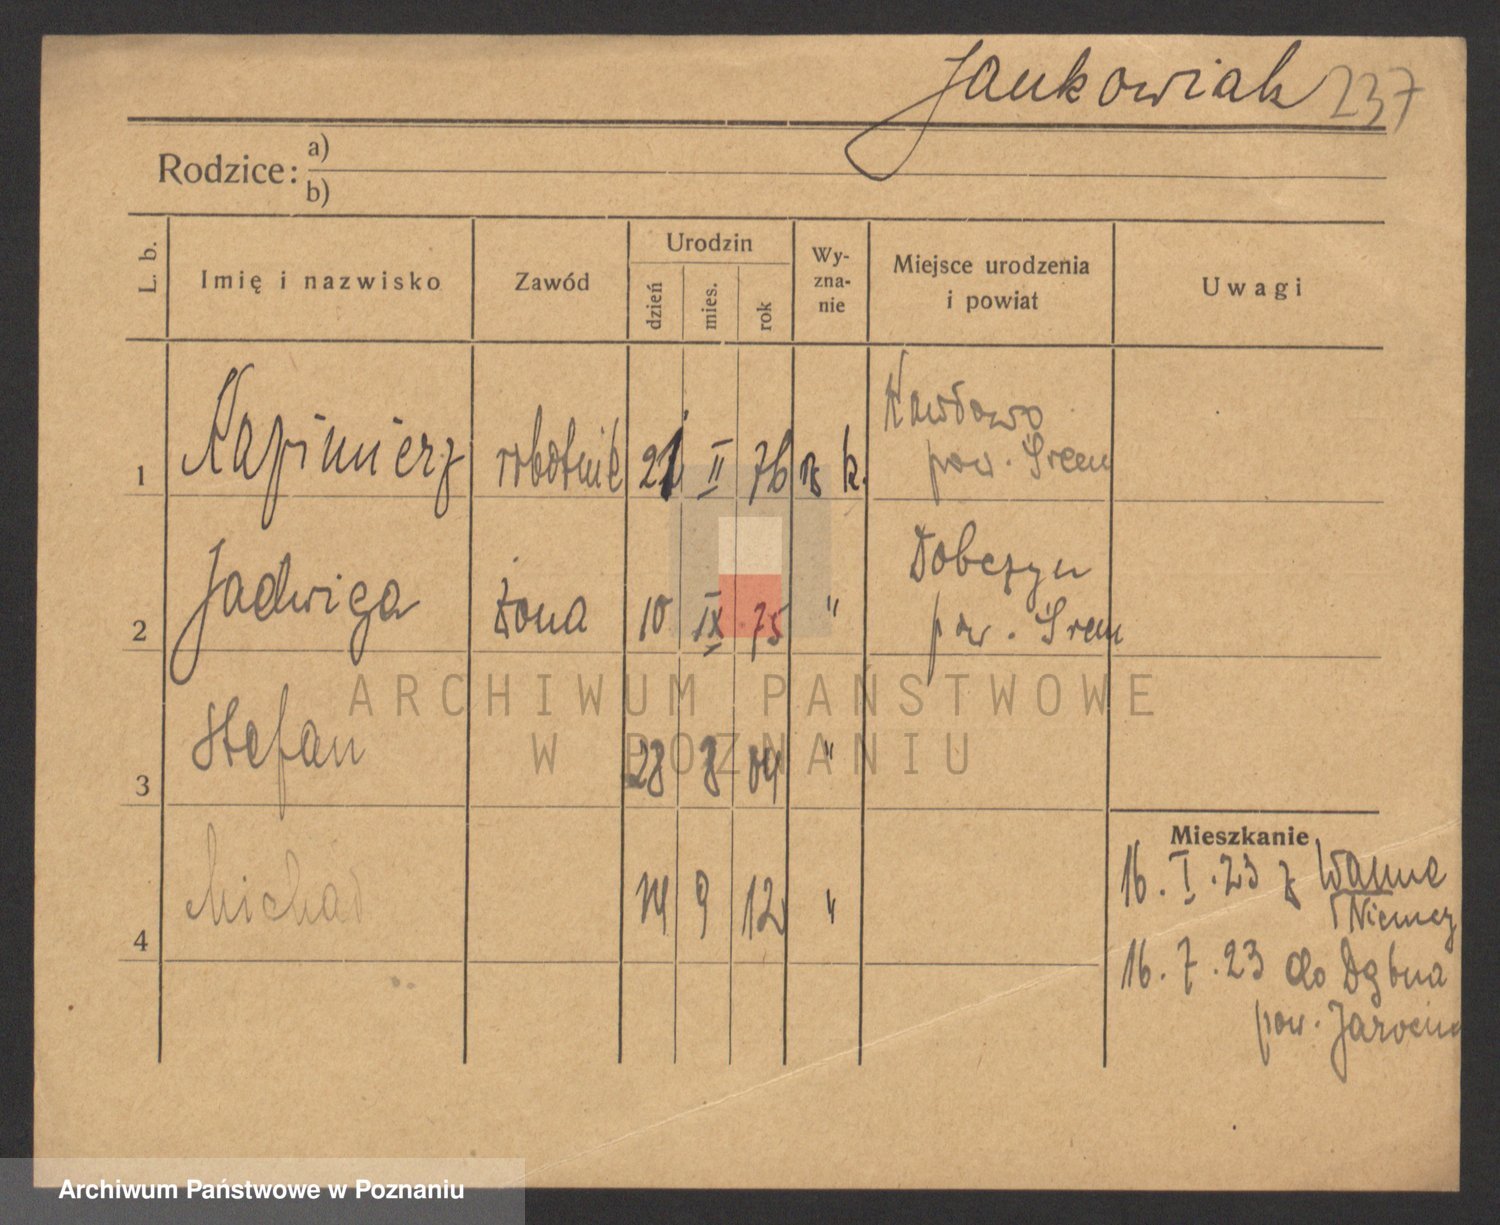 Jankowiak 237
Rodzice: a)
b)
L. b.
Imię i nazwisko
Zawód
Urodzin
dzień
mies.
rok
Wy-
zna-
nie
Miejsce urodzenia
i powiat
Uwagi
1 Kazimierz robotnik 21 II 76 rz k. Kawdowo
pow. Śrem
2 Jadwiga żona 10 IX 75 " Dobczyn
pow. Śrem
3 Stefan 28 8 04 "
4 Michał 14 9 12 "
Mieszkanie
16. I. 23 z Wanne
Niemcy
16. 7. 23 do Dębna
pow. Jarocin
ARCHIWUM PAŃSTWOWE
W POZNANIU
Archiwum Państwowe w Poznaniu